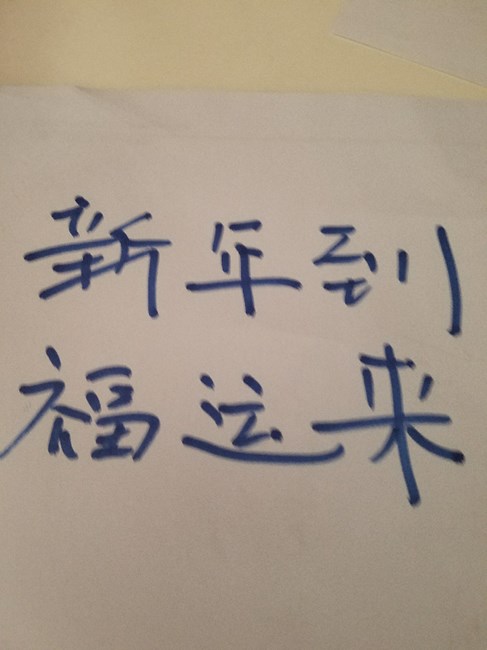 新年到
福运来